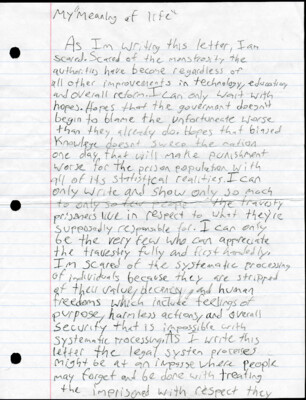 My "Meaning of life"
As I'm writing this letter, I am
scared. Scared of the monstrosity the
authorities have become regardless of
all other improvements in technology, education,
and overall reform. I can only wait with
hopes. Hopes that the goverment doesn't
begin to blame the unfortunate worse
than they already do. Hopes that biased
Knowlege doesn't sweep the nation
one day, that will make punishment
worse for the prison population with
all of its statistical realities. I can
only write and show only so much
to only so few people the travesty
prisoners live in respect to what they're
supposedly responsible for. I can only
be the very few who can appreciate
the travestity fully and first handedly.
I'm scared of the systematic processing
of individuals because they are stripped
of their value, decency, and human
freedoms which include feelings of
purpose, harmless actions, and overall
security that is impossible with
systematic processing. As I write this
letter the legal system processes
might be at an impasse where people
may forget and be done with treating
the imprisoned with respect they